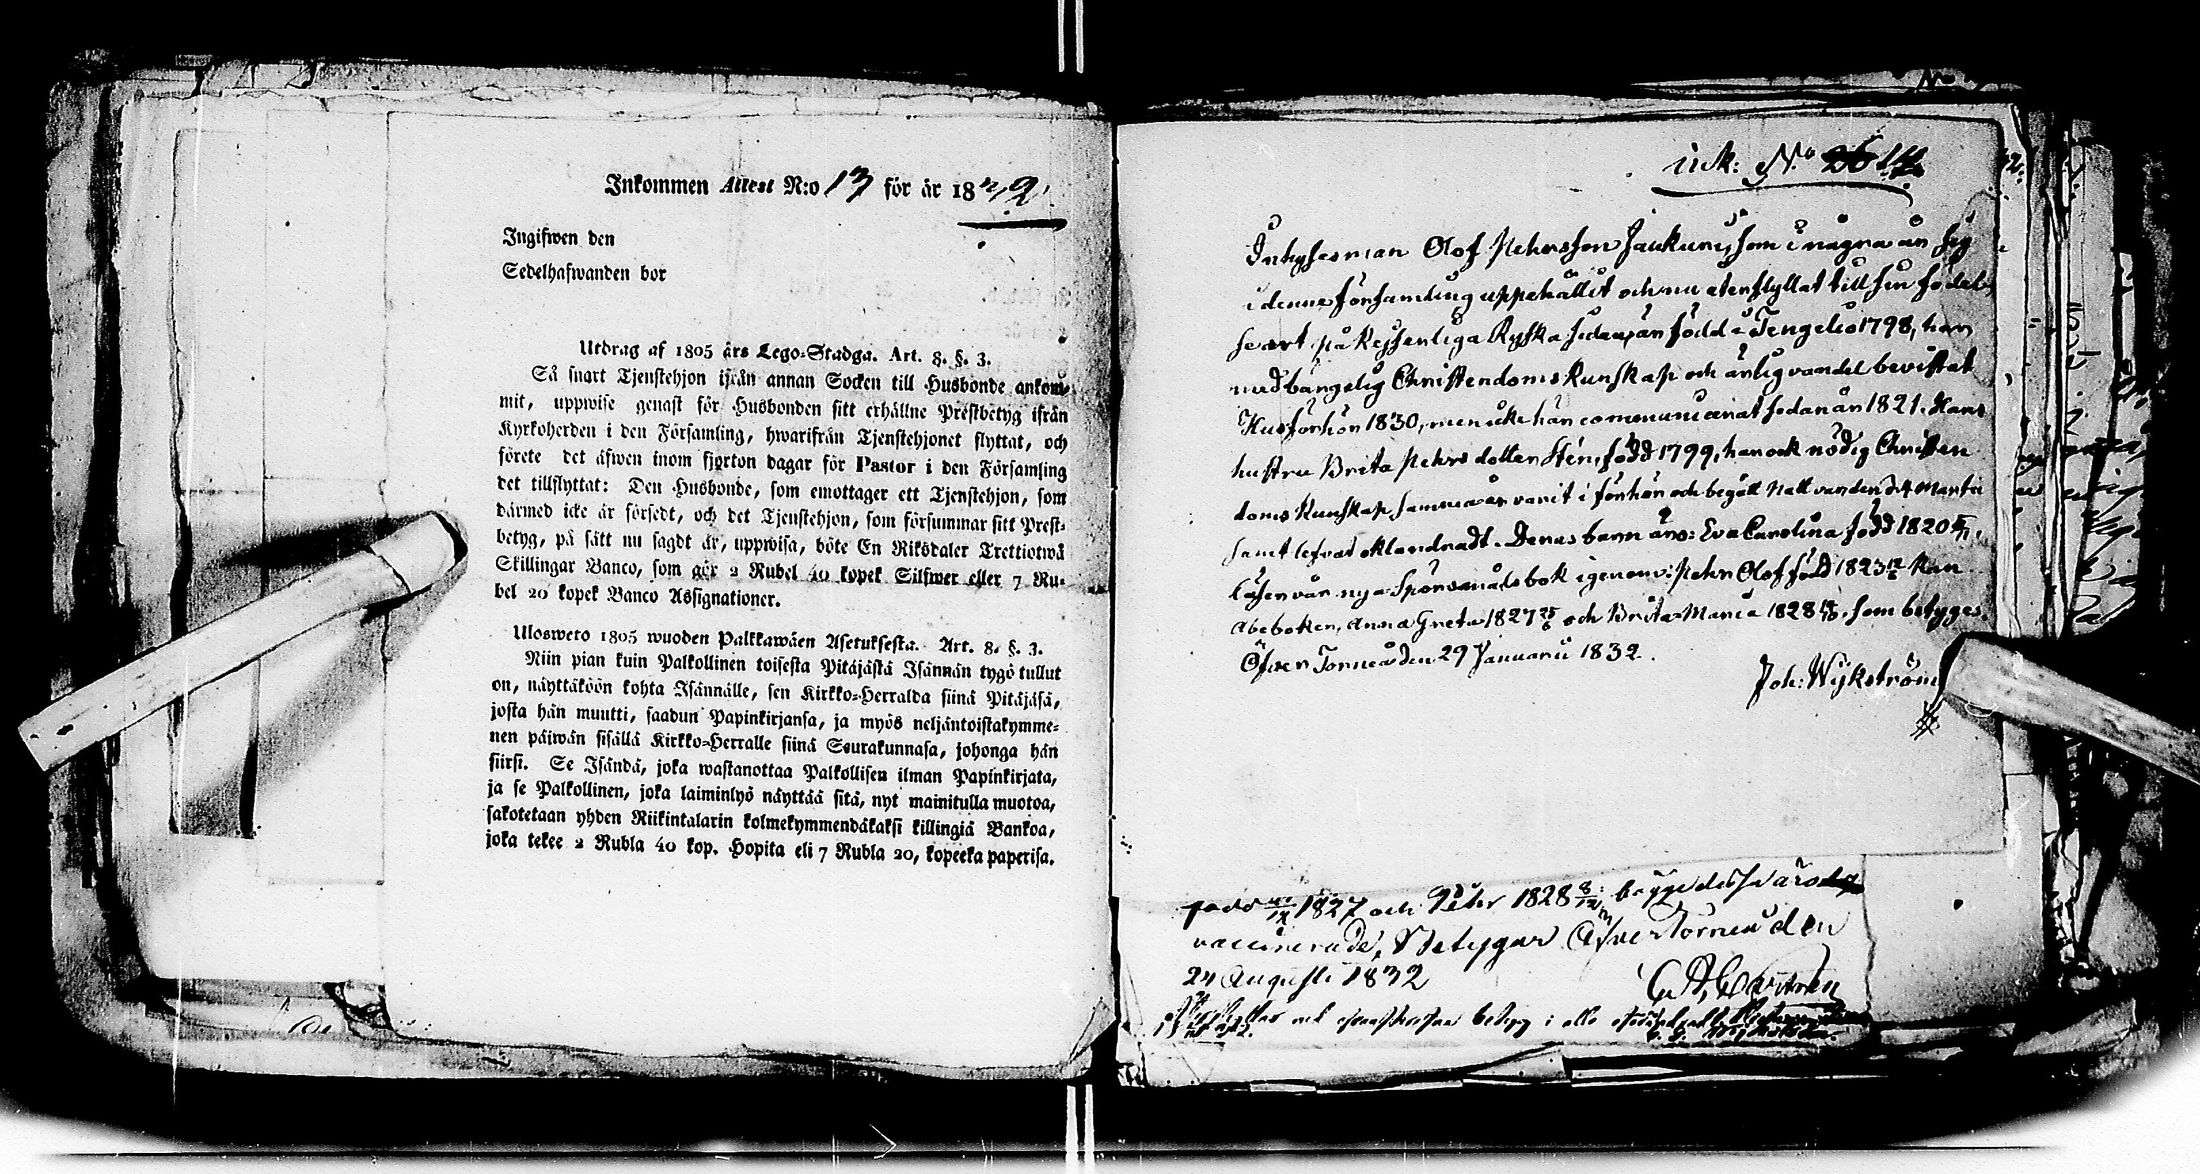 Inkommen Attest N:o 13 för år 1832.
Ingifwen den
Sedelhafwanden bor
Utdrag af 1805 års Lego-Stadga. Art. 8. §. 3.
Så snart Tjenstehjon ifrån annan Socken till Husbonde ankom-
mit, uppwise genast för Husbonden sitt erhållne Prestbetyg ifrån
Kyrkoherden i den Församling, hwarifrån Tjenstehjonet flyttat, och
förete det äfwen inom fjorton dagar för Pastor i den Församling
det tillflyttat: Den Husbonde, som emottager ett Tjenstehjon, som
därmed icke är försedt, och det Tjenstehjon, som försummar sitt Prest-
betyg, på sätt nu sagdt är, uppwisa, böte En Riksdaler Trettiotwå
Skillingar Banco, som gör 2 Rubel 40 kopek Silfwer eller 7 Ru-
bel 20 kopek Banco Assignationer.
Ulosweto 1805 wuoden Palkkawäen Asetuksesta. Art. 8. §. 3.
Niin pian kuin Palkollinen toisesta Pitäjästä Isännän tygö tullut
on, näyttäköön kohta Isännälle, sen Kirkko-Herralda siinä Pitäjäsä,
josta hän muutti, saadun Papinkirjansa, ja myös neljäntoistakymme-
nen päiwän sisällä Kirkko-Herralle siinä Seurakunnasa, johonga hän
siirsi. Se Isändä, joka wastanottaa Palkollisen ilman Papinkirjata,
ja se Palkollinen, joka laiminlyö näyttää sitä, nyt mainitulla muotoa,
sakotetaan yhden Riikintalarin kolmekymmendäkaksi killingiä Bankoa,
joka tekee 2 Rubla 40 kop. Hopita eli 7 Rubla 20, kopeeka paperisa.
ink: No 14
Inhysesman Olof Pehrsson som i några år sig
i denna församling uppehållit och nu återflyttat till sin födel-
se ort på Kejserliga Ryska sidan, är född i Tengeliö 1798, har
nödtorftelig Christendoms Kunskap och ärlig vandel bevistat
Husförhör 1830, men icke här communicerat sedan år 1821. Hans
hustru Brita Pehrs dotter född 1799, har ock nödig Christen
doms Kunskap samma år varit i förhör och begått Nattvarden
samt lefvat oklandradt. Deras barn äro: Eva Carolina född 1820
läser vår nya Spörsmåls bok igenom: Pehr Olof född 1823 kan
Abeboken, Anna Greta 1827 och Brita Maria 1828 som betygas.
Öfver Torneå den 29 Januarii 1832.
Joh: Wijkström
född 1827 och Pehr 1828 begge dessa äro
vaccinerade, Betygar Öfver Torneå den
24 Augusti 1832
betyg i